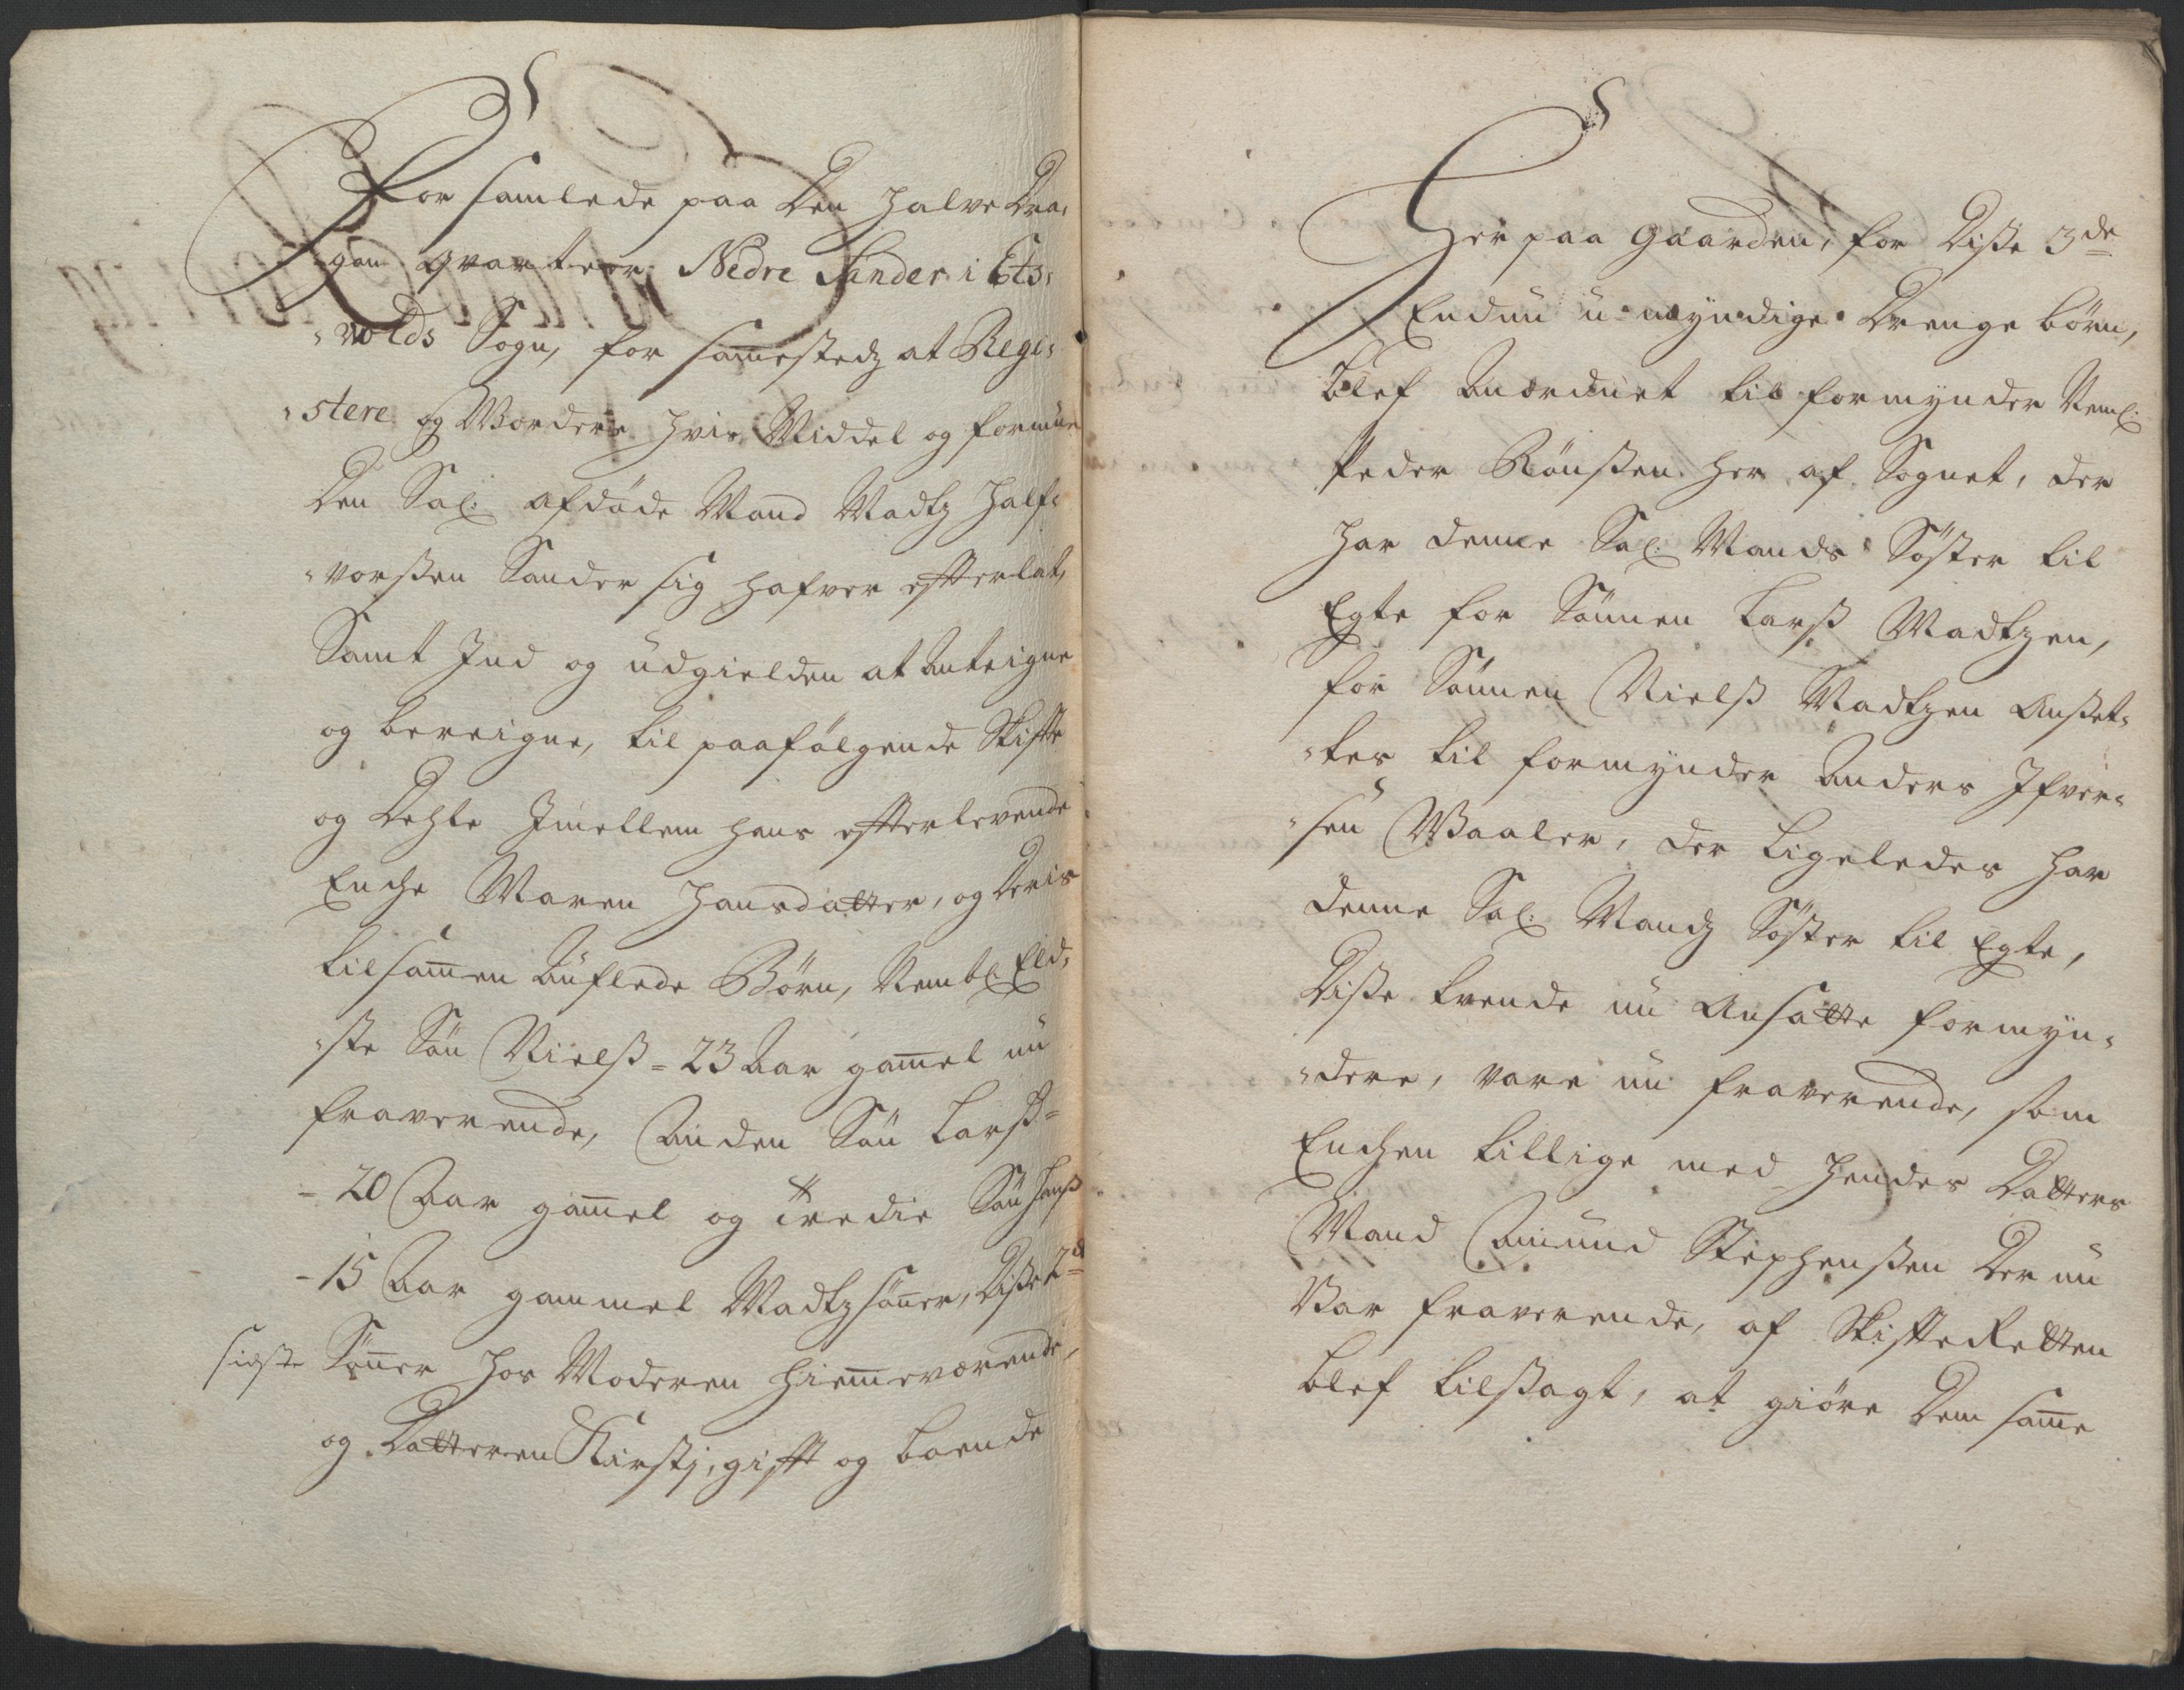 For samlede paa Den halve Dra-
gon qvarteer Nedre Sander i Eids-
"wolds Sogn, for sam̄estedz at Regi-
"stere og Wordere hvis Middel og formue
Den Sal: afdøde Mand Madtz Half-
"vorßen Sander sig hafver efterlat,
Samt Ind og udgielden at Anteigne
og bereigne, til paafølgende Skifte
og Dehle Imellem hans efterlevende
Enche Maren Hansdatter, og Deris
tilsam̄en Auflede Børn, Nembl: Eld-
"ste Søn Nielß = 23 Aar gam̄el nu
fraverende, Anden Søn Larß =
- 20 Aar gam̄el og tredie Søn Hanß
- 15 Aar gammel Madtzsøn̄er, Diße 2de
sidste Søn̄er hos Moderen hiem̄eværende,
og Datteren Kirstj, gift og boende
Her paa Gaarden, for Diße 3de
Endnu u-myndige Drenge børn,
Blef Anordnet til formynder Neml:
Peder Rønßen her af Sognet, der
har denne Sal: Mands Søster til
Egte for Sønnen Larß Madtzen,
for Sønnen Nielß Madtzen Anßet-
"tes til formynder Anders Ifver-
"sen Waaler, der ligeledes har
denne Sal: Mandz Søster til Egte,
Diße tvende nu Ansatte formyn-
"dere, vare nu fraverende, som
Enchen tillige med hendes Datters
Mand Amund Stephenßen Der nu
Var fraverende, af SkifteRetten
blef tilßagt, at giøre Dem sam̄e